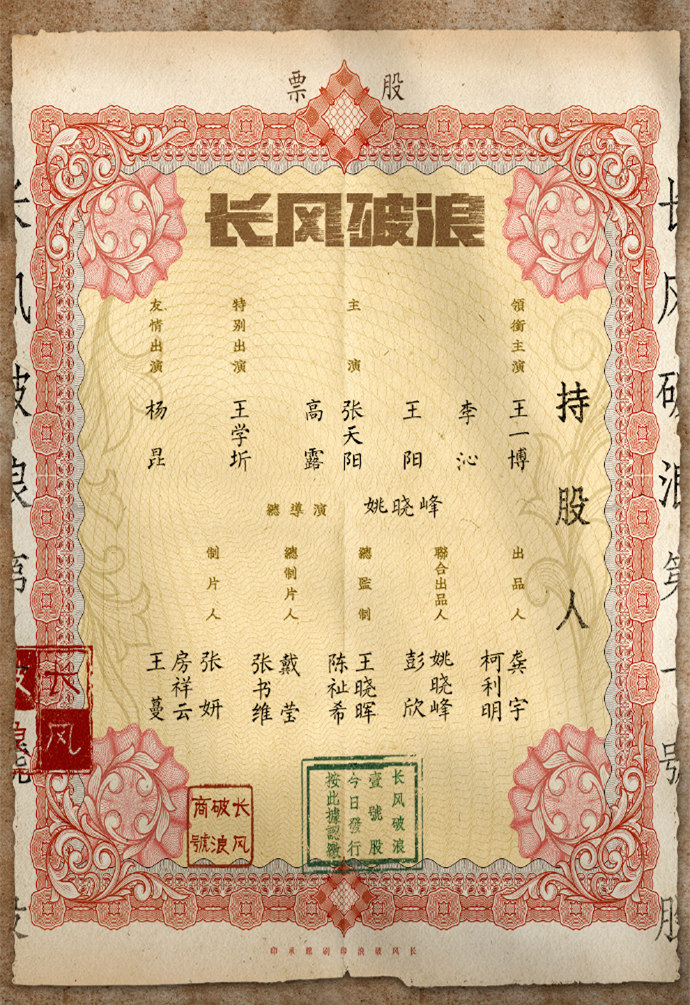 股票
长风破浪
持股人
領銜主演
王一博
李沁
主演
王阳
张天阳
高露
特别出演
王学圻
友情出演
杨昆
總導演
姚晓峰
出品人
龚宇
柯利明
聯合出品人
姚晓峰
彭欣
總監制
王晓晖
陈祉希
總制片人
戴莹
张书维
制片人
张妍
房祥云
王蔓
长风破浪第一號
股
长风破浪第
长风
长风破浪商號
长风破浪
壹號股
今日發行
按此據認繳
长风破浪印刷廠承印